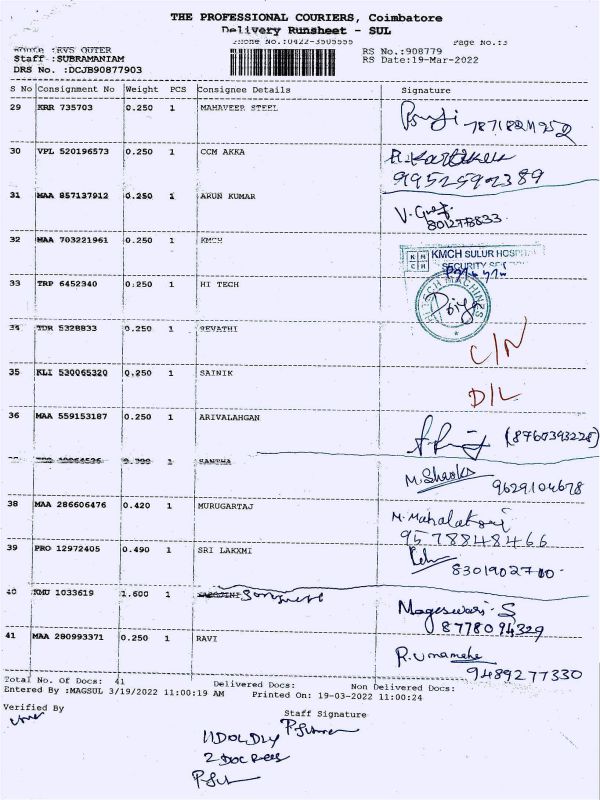 THE PROFESSIONAL COURIERS, Coimbatore
Delivery Runsheet - SUL
Phone No.:0422-3505555 Page No.:3
Source :RVS OUTER RS No.:908779
Staff :SUBRAMANIAM RS Date:19-Mar-2022
DRS No. :DCJB90877903
S No Consignment No Weight PCS Consignee Details Signature
29 KRR 735703 0.250 1 MAHAVEER STEEL
30 VPL 520196573 0.250 1 CCM AKKA
9952592389
31 MAA 857137912 0.250 1 ARUN KUMAR
801278833
32 MAA 703221961 0.250 1 KMCH
KMCH SULUR HOSPITAL
SECURITY
33 TRP 6452340 0.250 1 HI TECH
34 TDR 5328833 0.250 1 REVATHI
C/N
35 KLI 530065320 0.250 1 SAINIK
D/L
36 MAA 559153187 0.250 1 ARIVALAHGAN
(8760393228)
SANTHA
9629104678
38 MAA 286606476 0.420 1 MURUGARTAJ
9578848466
39 PRO 12972405 0.490 1 SRI LAKXMI
40 KMU 1033619 1.600 1 SAROJINI
Mageswari. S
8778094329
41 MAA 280993371 0.250 1 RAVI
9489277330
Total No. Of Docs: 41 Delivered Docs: Non Delivered Docs:
Entered By :MAGSUL 3/19/2022 11:00:19 AM Printed On: 19-03-2022 11:00:24
Verified By Staff Signature